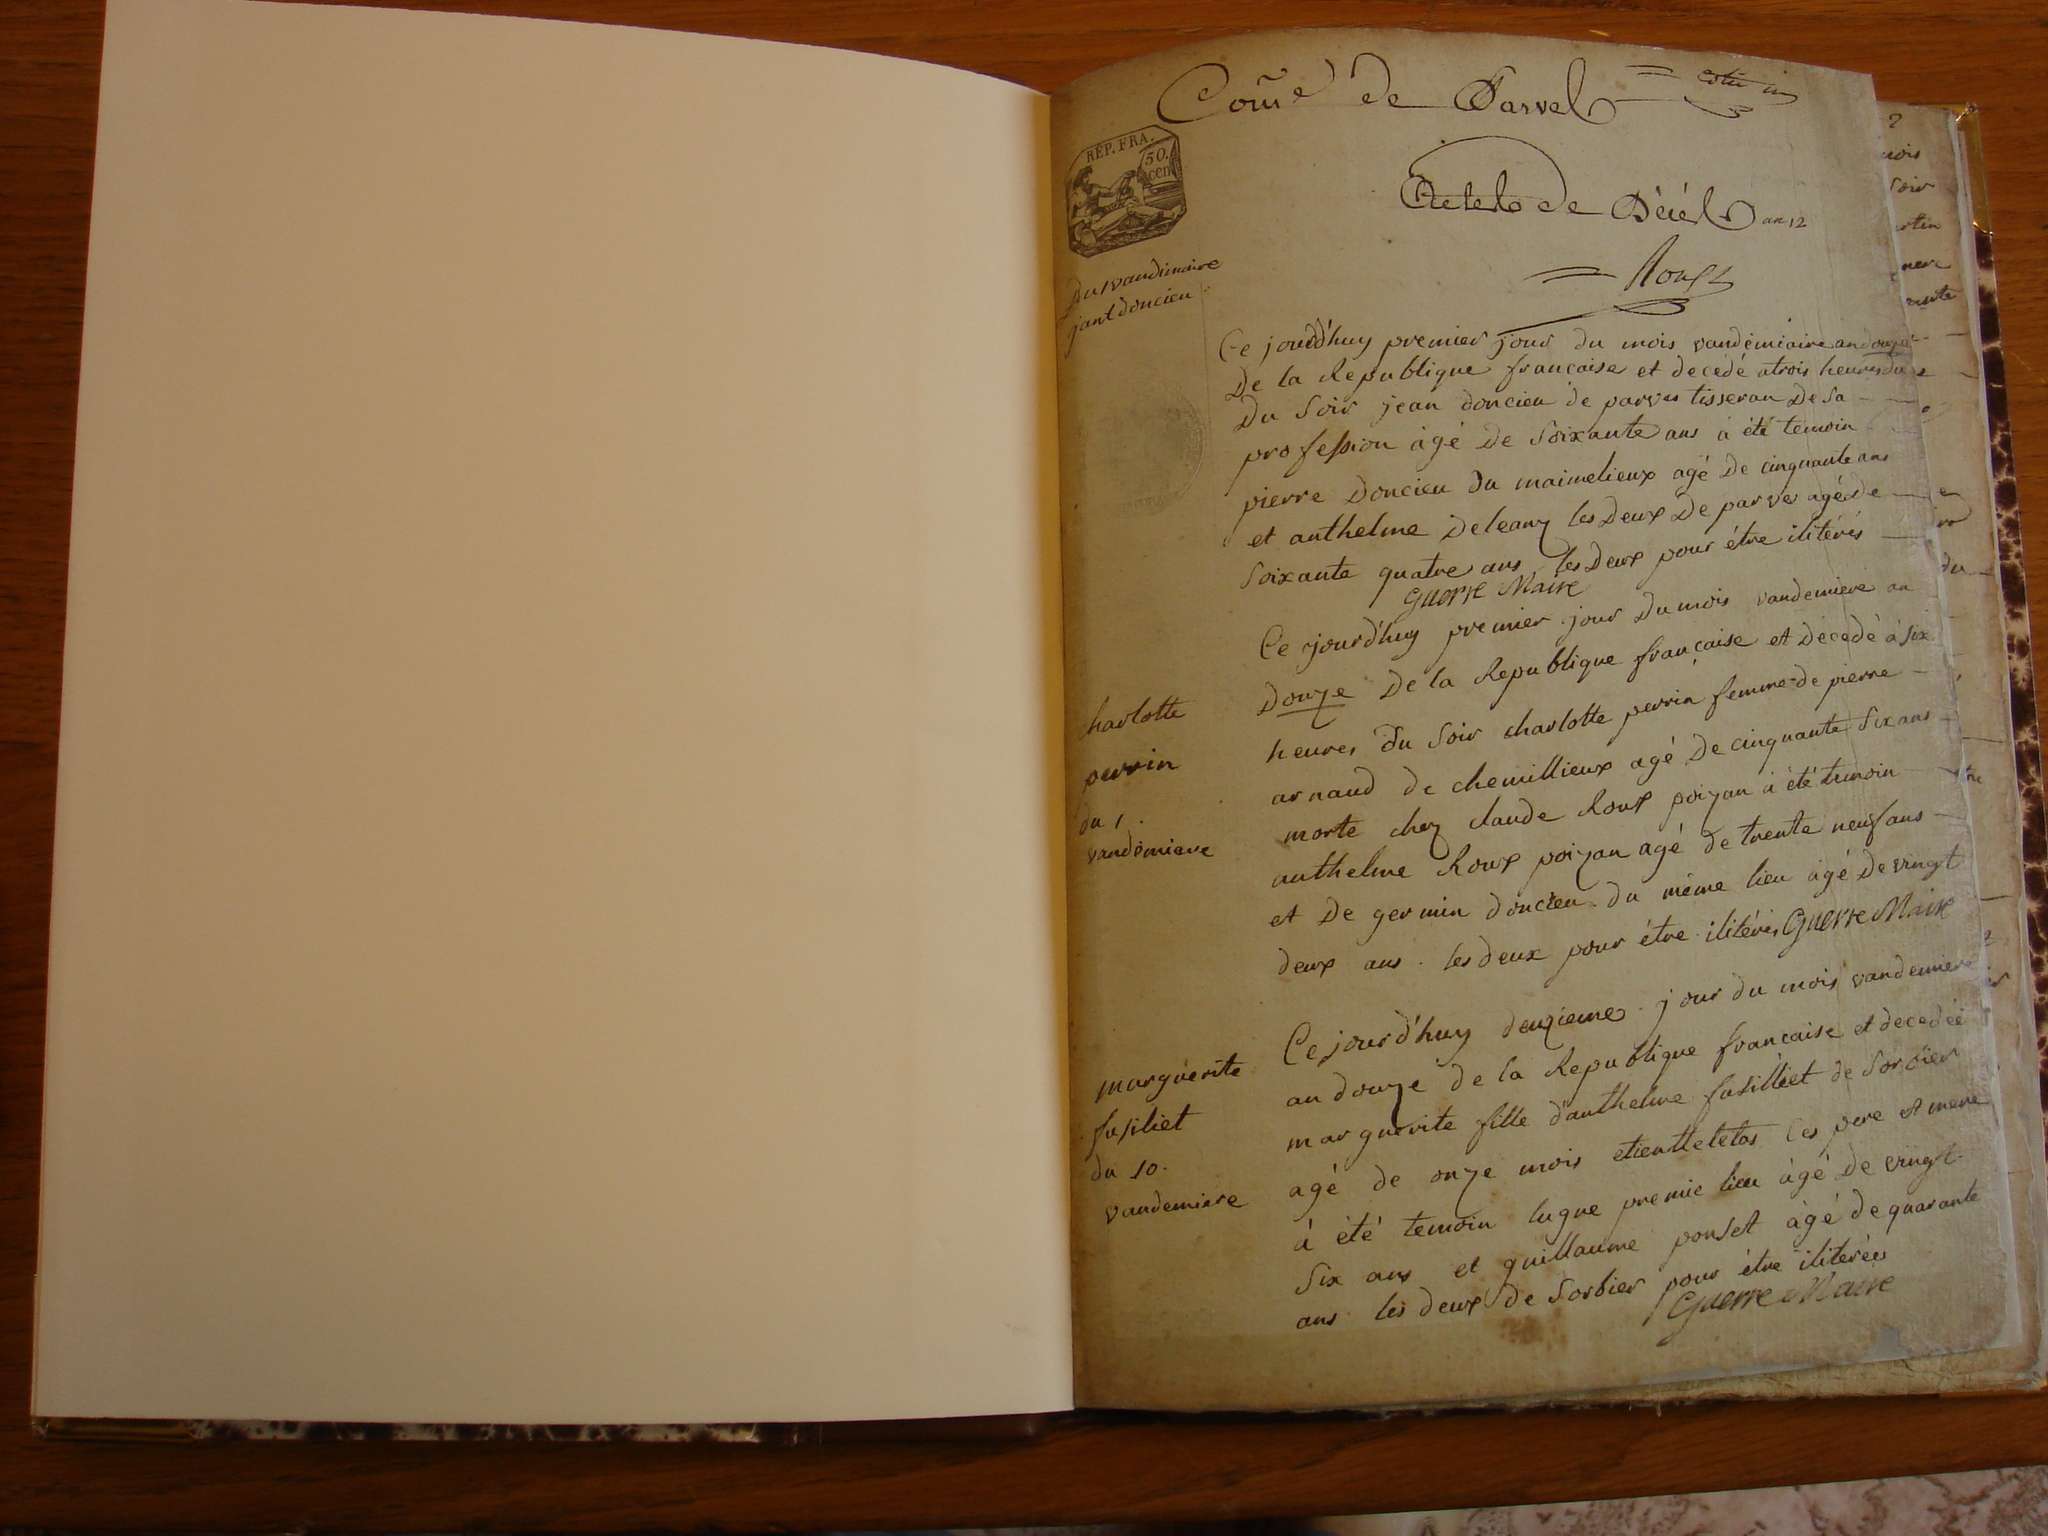 Com̃e de Parve
RÉP. FRA.
50.
cen
Acte de Décés an 12
Roux
Du 1 vandimaire
jean doncieu
Ce jourd'huy premier jour du mois vandémiaire an douze
De la Republique francaise et decedé a trois heures du
Du soir jean doncieu de parves tisseran De sa
profession agé de soixante ans a été temoin
pierre Doncieu du maimelieux agé De cinquante ans
et anthelme Deleauz les Deux De parves agé de
soixante quatre ans les Deux pour étre ilitérés
Guerre Maire
charlotte
perrin
du 1.
vandémiere
Ce jourd'huy premier jour Du mois vandemiere an
Douze De la Republique francaise et décedé à six
heures du soir charlotte perrin femme de pierre
arnaud de chemillieux agé De cinquante six ans
morte chez claude Roux poizan à été temoin
anthelme Roux poizan agé de trente neuf ans
et De germin doncieu du méme lieu agé De vingt
deux ans. les deux pour étre ilitérés Guerre Maire
marguerite
fusiliet
du 10.
vandemiere
Ce jourd'huy deuzieme jour du mois vandemiere
an douze de la Republique francaise et decedée
marguerite fille d'anthelme fusilliet de Sorbier
agé de onze mois ces pere et mere
à été temoin lugne premie lieu àgé de vingt
six ans et guillaume ponset àgé de quarante
ans les deux de Sorbier pour étre ilitérées
Guerre Maire
2
mois
soir